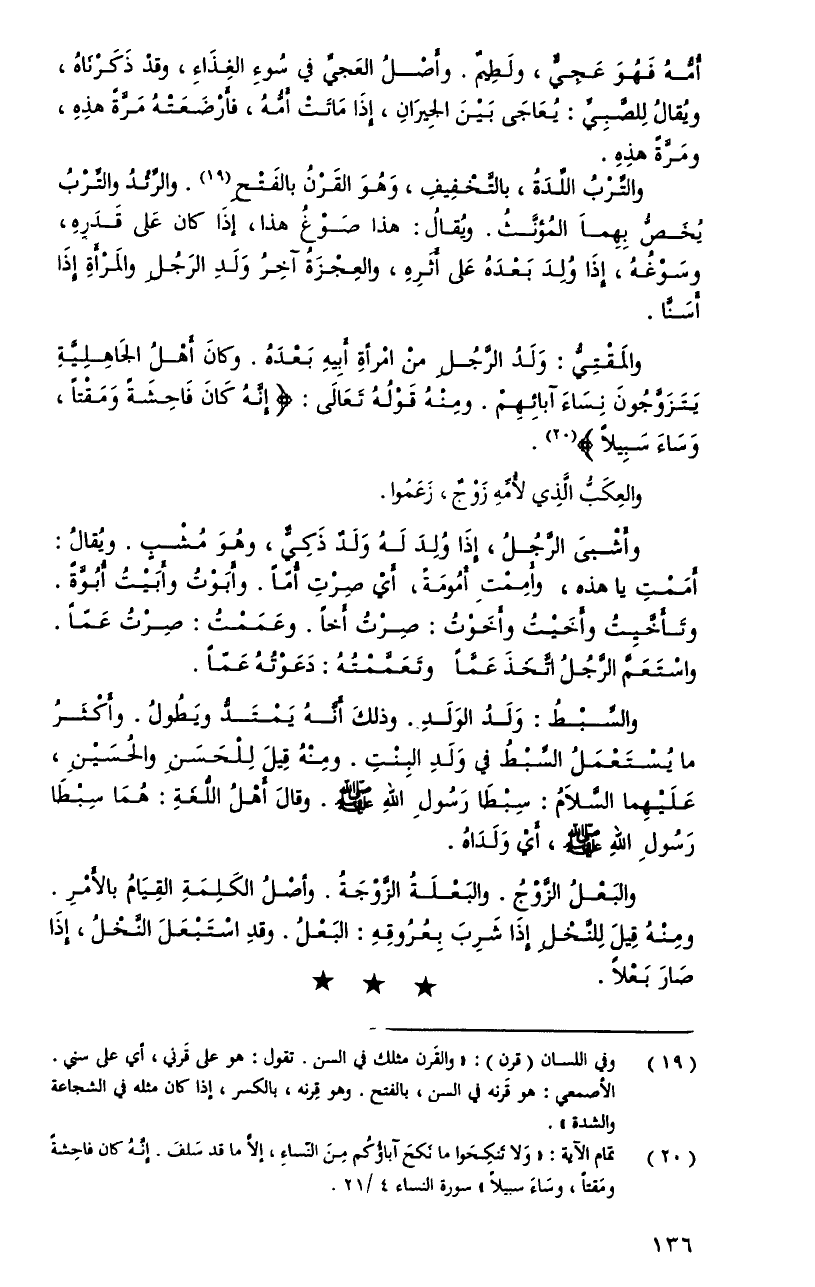 أُمُّهُ فَهُوَ عَجِيٌّ ، ولَطِيمٌ . وأَصْلُ العَجيِّ في سُوءِ الغِذَاءِ ، وقدْ ذَكَرْنَاهُ ،
ويُقالُ لِلصَّبِيِّ : يُعَاجَى بَيْنَ الجِيرَانِ ، إذَا مَاتَتْ أُمُّهُ ، فَأَرْضَعَتْهُ مَرَّةً هذِهِ ،
ومَرَّةً هذِهِ .
والتِّرْبُ اللِّدَةُ ، بالتَّخْفِيفِ ، وَهُوَ القَرْنُ بالفَتْحِ (١٩) . والرِّئْدُ والتِّرْبُ
يُخَصُّ بِهِمَا المُؤَنَّثُ . ويُقالُ : هذا صَوْغُ هذا ، إذَا كان عَلى قَدَرِهِ ،
وسَوْغُهُ ، إذَا وُلِدَ بَعْدَهُ عَلى أَثَرِهِ ، والعِجْزَةُ آخِرُ وَلَدِ الرَّجُلِ والمَرْأَةِ إذَا
أَسَنَّا .
والمَقْتِيُّ : وَلَدُ الرَّجُلِ منْ امْرأةِ أَبِيهِ بَعْدَهُ . وكانَ أَهْلُ الجَاهِلِيَّةِ
يَتَزَوَّجُونَ نِسَاءَ آبائِهِمْ . ومِنْهُ قَوْلُهُ تَعَالَى : ﴿ إنَّهُ كَانَ فَاحِشَةً وَمَقْتاً ،
وَسَاءَ سَبِيلاً ﴾(٢٠) .
والعِكَبُّ الَّذِي لأُمِّهِ زَوْجٌ ، زَعَمُوا .
وأَشْبىَ الرَّجُلُ ، إذَا وُلِدَ لَهُ وَلَدٌ ذَكِيٌّ ، وهُوَ مُشْبٍ . ويُقالُ :
أَمَمْتِ يا هذه ، وأَمِمْتِ أُمُومَةً ، أَيْ صِرْتِ أُمّاً . وأَبَوْتُ وأَبَيْتُ أُبُوَّةً .
وتَأَخَّيتُ وأَخَيْتُ وأَخَوْتُ : صِرْتُ أَخاً . وعَمَمْتُ : صِرْتُ عَمّاً .
واسْتَعَمَّ الرَّجُلُ اتَّخَذَ عَمَّاً وتَعَمَّمْتُهُ : دَعَوْتُهُ عَمّاً .
والسِّبْطُ : وَلَدُ الوَلَدِ . وذلكَ أَنَّهُ يَمْتَدُّ ويَطُولُ . وأَكْثَرُ
ما يُسْتَعْمَلُ السِّبْطُ في وَلَدِ البِنْتِ . ومِنْهُ قِيلَ لِلْحَسَنِ والحُسَيْنِ ،
عَلَيْهِما السَّلاَمُ : سِبْطَا رَسُولِ اللهِ ﷺ . وقالَ أَهْلُ اللُّغَةِ : هُمَا سِبْطَا
رَسُولِ اللهِ ﷺ ، أَيْ وَلَدَاهُ .
والبَعْلُ الزَّوْجُ . والبَعْلَةُ الزَّوْجَةُ . وأصْلُ الكَلِمَةِ القِيَامُ بالأَمْرِ .
ومِنْهُ قِيلَ لِلنَّخْلِ إذَا شَرِبَ بِعُرُوقِهِ : البَعْلُ . وقدِ اسْتَبْعَلَ النَّخْلُ ، إذَا
صَارَ بَعْلاً .
★ ★ ★
(١٩) وفي اللسان ( قرن ) : « والقَرن مثلك في السن . تقول : هو على قَرني ، أي على سني .
الأصمعي : هو قَرنه في السن ، بالفتح . وهو قِرنه ، بالكسر ، إذا كان مثله في الشجاعة
والشدة » .
(٢٠) تمام الآية : « وَلا تَنكِحَوا ما نَكحَ آباؤكُم مِنَ النّساءِ ، إلاّ ما قد سَلفَ . إنّهُ كان فاحِشةً
ومَقتاً ، وسَاءَ سبيلاً » سورة النساء ٤ /٢١ .
١٣٦